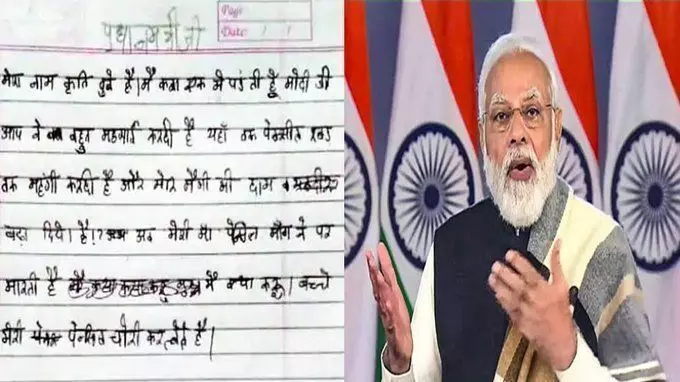 Page
Date: / /
प्रधान मंत्री जी
मेरा नाम कृति दुबे है। मै कक्षा एक मे पड़ती हूँ मोदी जी
आप ने बहुत महगाई करदी है यहाँ तक पेन्सील रबड़
तक महंगी करदी है और मेरे मैगी की दाम
बढ़ा दिये है।? अब मेरी मा पेंसिल माँगने पर
मारती है मै क्या करू। बच्चे
मेरी पेन्सिल चोरी कर लेते है।